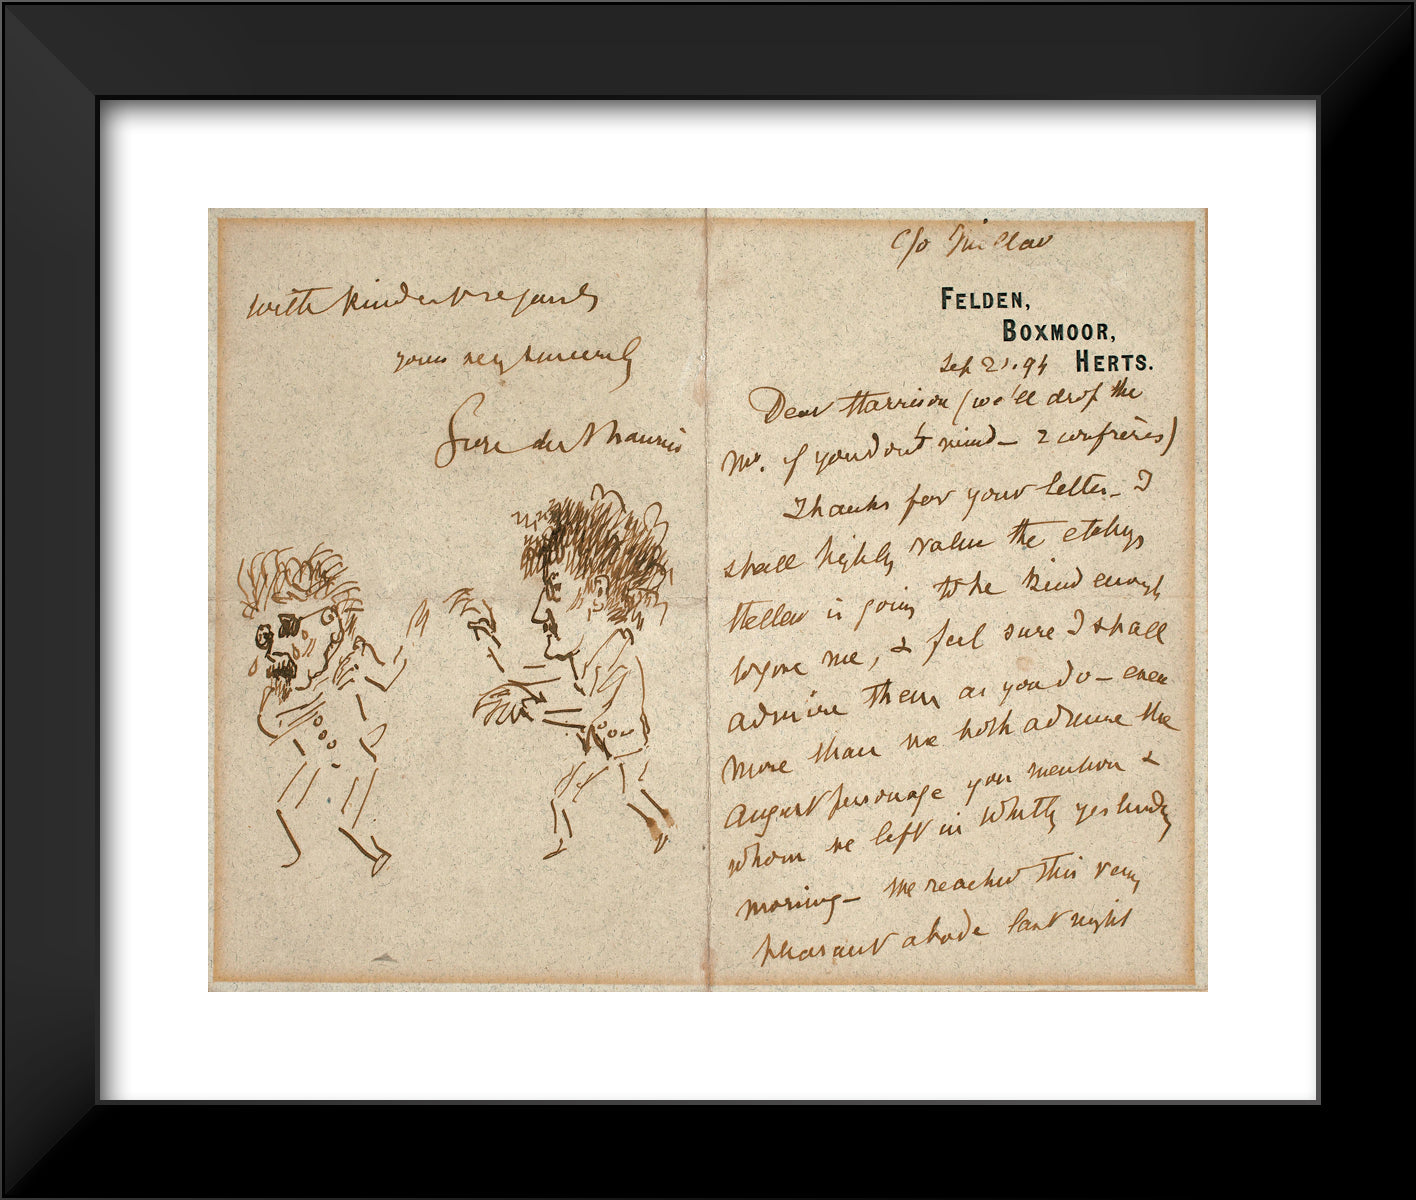 c/o Mellor
FELDEN,
BOXMOOR,
HERTS.
Sep 21. 94
Dear Harrison (we'll drop the
Mr. if you don't mind – 2 confrères)
Thanks for your letter – I
shall highly value the etchings
Mellor is going to be kind enough
to give me, & feel sure I shall
admire them as you do – even
more than we both admire the
august personage you mention &
whom we left in Whitby yesterday
morning – We reached this very
pleasant abode last night
with kindest regards
yours very sincerely
du Maurier